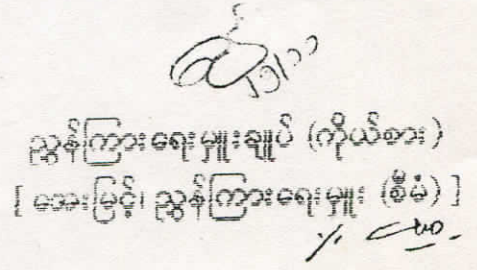 ညွှန်ကြားရေးမှူးချုပ် (ကိုယ်စား)
[ အေးမြင့်၊ ညွှန်ကြားရေးမှူး (စီမံ) ]